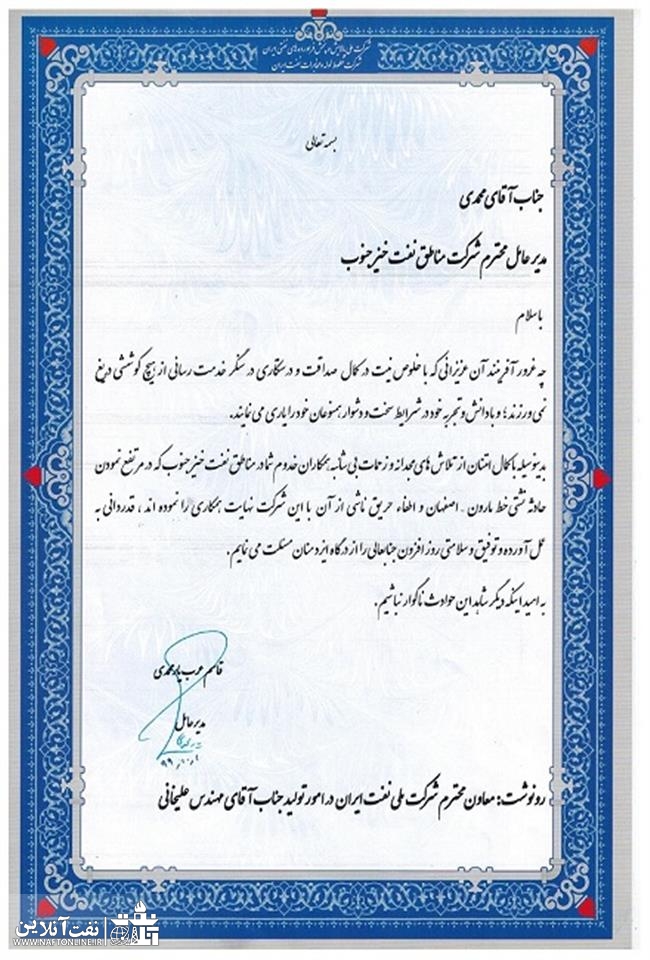 شرکت ملی پالایش و پخش فرآورده‌های نفتی ایران
شرکت خطوط لوله و مخابرات نفت ایران
بسمه تعالی
جناب آقای محمدی
مدیر عامل محترم شرکت مناطق نفت خیز جنوب
با سلام
چه غرور آفرینند آن عزیزانی که با خلوص نیت در کمال صداقت و درستکاری در سنگر خدمت رسانی از هیچ کوششی دریغ
نمی ورزند؛ و با دانش و تجربه خود در شرایط سخت و دشوار همنوعان خود را یاری می نمایند.
بدینوسیله با کمال امتنان از تلاش های مجدانه و زحمات بی شائبه همکاران خدوم شما در مناطق نفت خیز جنوب که در مرتفع نمودن
حادثه نشتی خط مارون - اصفهان و اطفاء حریق ناشی از آن با این شرکت نهایت همکاری را نموده اند، قدردانی به
عمل آورده و توفیق و سلامتی روز افزون جنابعالی را از درگاه ایزد منان مسئلت می نمایم.
به امید اینکه دیگر شاهد این حوادث ناگوار نباشیم.
قاسم عرب یارمحمدی
مدیر عامل
رونوشت: معاون محترم شرکت ملی نفت ایران در امور تولید جناب آقای مهندس علیخانی
نفت آنلاین
WWW.NAFTONLINE.IR